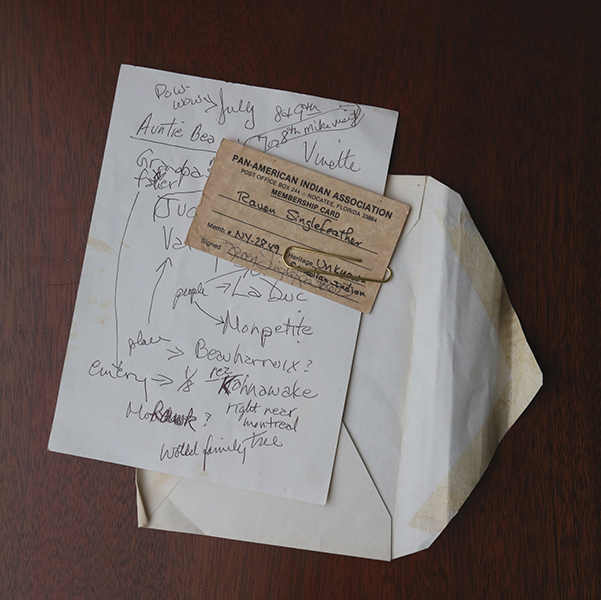 Pow-
wow → July 8 & 9th
Auntie Bea
Vinette
Grandpa's
father
Juc
Va
people → La Duc
Monpetite
place → Beauharnoix?
rez
Kahnawake
Mohawk? right near
montreal
world family tree
PAN-AMERICAN INDIAN ASSOCIATION
POST OFFICE BOX 244 — NOCATEE, FLORIDA 33864
MEMBERSHIP CARD
Raven Singlefeather
Memb. # NY-2849
Heritage Unknown
Canadian Indian
Signed